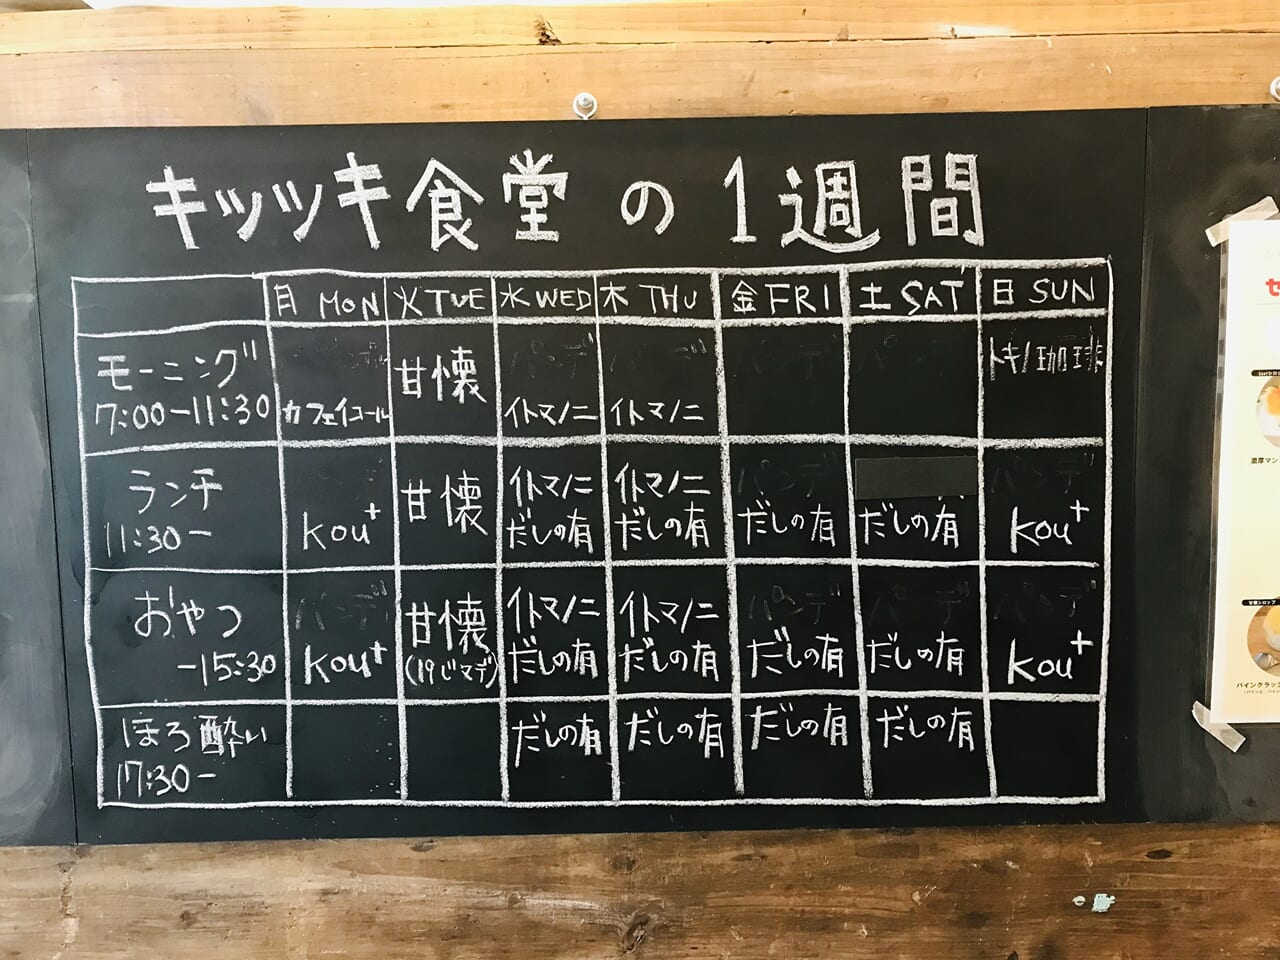 キツツキ食堂の1週間
月 MON 火 TUE 水 WED 木 THU 金 FRI 土 SAT 日 SUN
モーニング
7:00-11:30
カフェイコール
甘懐
イトマノニ
イトマノニ
トキノ珈琲
ランチ
11:30-
kou+
甘懐
イトマノニ
だしの有
イトマノニ
だしの有
パンデ
だしの有
だしの有
パンデ
kou+
おやつ
-15:30
パンデ
kou+
甘懐
(19じマデ)
イトマノニ
だしの有
イトマノニ
だしの有
パンデ
だしの有
パンデ
だしの有
パンデ
kou+
ほろ酔い
17:30-
だしの有
だしの有
だしの有
だしの有
濃厚マン
パインクラッシ